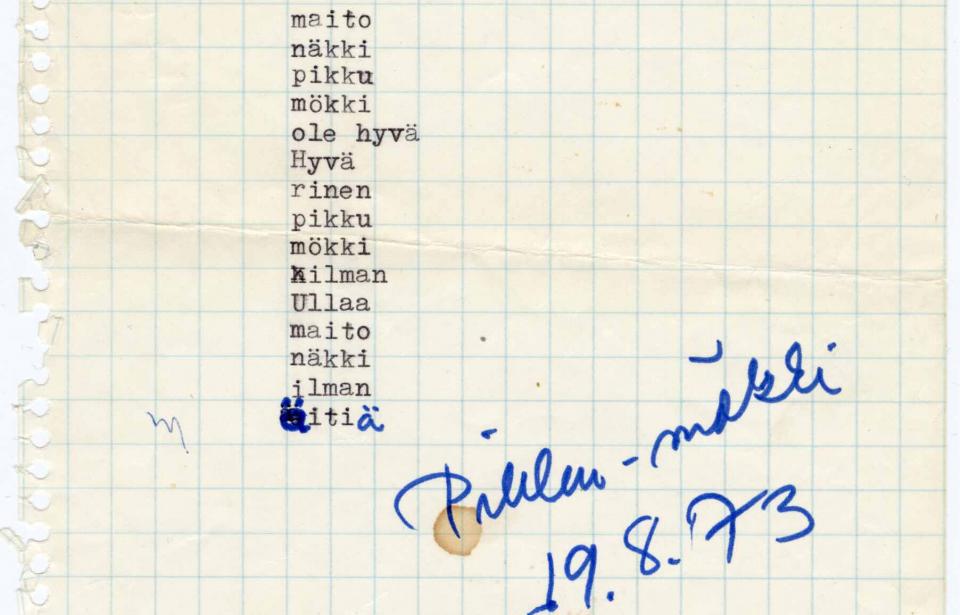 maito
näkki
pikku
mökki
ole hyvä
Hyvä
rinen
pikku
mökki
Hilman
Ullaa
maito
näkki
ilman
äitiä
m
Pikku-mökki
19.8.73